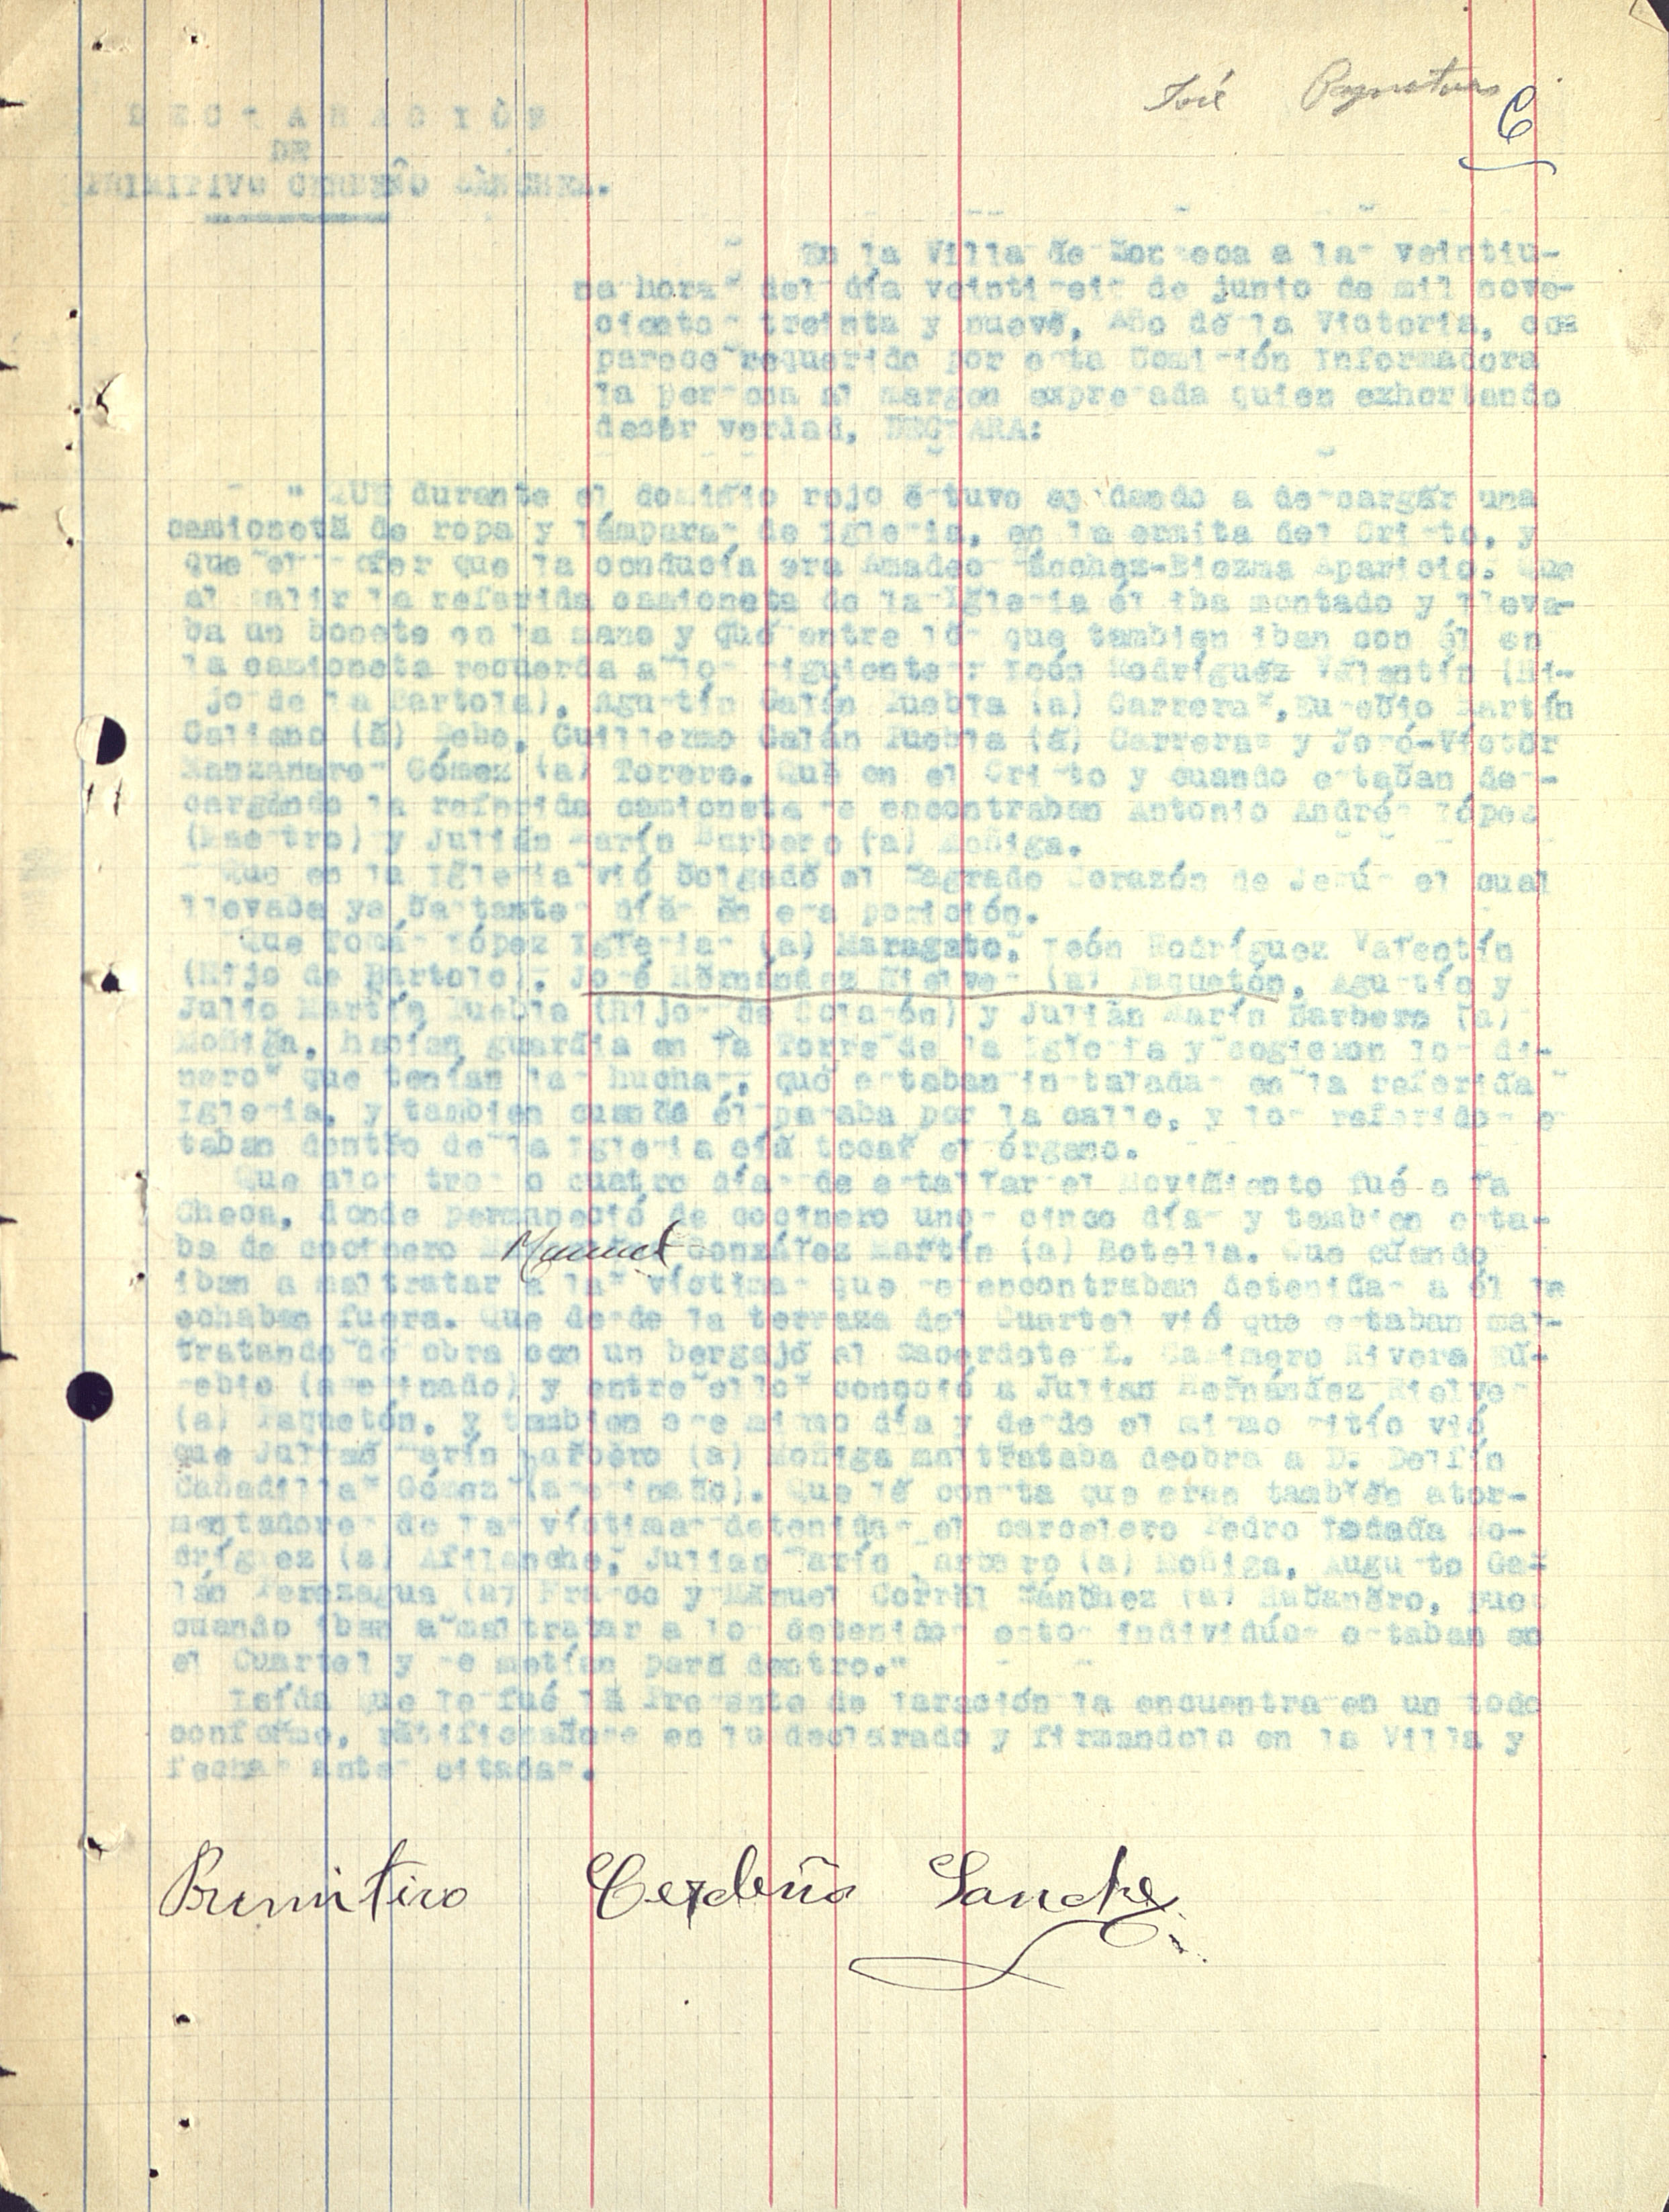 José
6
DECLARACIÓN
DE
PRIMITIVO CERDEÑO SÀNCHEZ.
En la Villa de a las veintiu-
na horas del día veintiseis de junio de mil nove-
cientos treinta y nueve, Año de la Victoria, com
parece requerido por esta Comisión Informadora
la persona al margen expresada quien exhortando
decir verdad, DECLARA:
" QUE durante el dominio rojo estuvo ayudando a descargar una
camioneta de ropa y lámparas de Iglesia, en la ermita del Cristo, y
que el chofer que la conducía era Amadeo Sánchez-Biezma Aparicio. Que
al salir la referida camioneta de la Iglesia él iba montado y lleva-
ba un bonete en la mano y que entre los que tambien iban con él en
la camioneta recuerda a los siguientes: León Rodríguez Valentín (Hi-
jo de la Bartola), Agustín Galán Puebla (a) Carreras, Eusebio Martín
Galiano (a) Bebo, Guillermo Galán Puebla (a) Carreras y José-Victor
Manzanares Gómez (a) Torero. Que en el Cristo y cuando estaban des-
cargando la referida camioneta se encontraban Antonio Andrés López
(Maestro) y Julián Marín Barbero (a) Moñiga.
Que en la Iglesia vió colgado el Sagrado Corazón de Jesús el cual
llevaba ya bastantes días en esa posición.
Que Tomás López Iglesias (a) Maragato, León Rodríguez Valentín
(Hijo de Bartolo), José Hernández Nielves (a) Paquetón, Agustín y
Julio Martín Puebla (Hijos de Colasón) y Julián Marín Barbero (a)
Moñiga, hacían guardia en la Torre de la Iglesia y cogieron los di-
neros que tenían las huchas, que estaban instaladas en la referida
Iglesia, y tambien cuando él pasaba por la calle, y los referidos es
taban dentro de la Iglesia oía tocar el órgano.
Que alos tres o cuatro días de estallar el Movimiento fué a la
Checa, donde permaneció de cocinero unos cinco días y tambien esta-
ba de cocinero Manuel González Martín (a) Botella. Que cuando
iban a maltratar a las víctimas que se encontraban detenidas a él le
echaban fuera. Que desde la terraza del Cuartel vió que estaban mal-
tratando de obra con un bergajo al Sacerdote D. Casimero Rivera Eu-
sebio (asesinado) y entre ellos conoció a Julian Hernández Nielves
(a) Paquetón, y tambien ese mismo día y desde el mismo sitio vió
que Julian Marín Barbero (a) Moñiga maltrataba deobra a D. Delfín
Cabadillas Gómez (asesinado). Que le consta que eran también ator-
mentadores de las víctimas detenidas el carcelero Pedro Ro-
dríguez (a) Afilanche, Julian Marín Barbero (a) Moñiga, Augusto Ga-
lán Perezagua (a) Frasco y Manuel Corral Sánchez (a) Habanero, pues
cuando iban a maltratar a los detenidos estos individúos estaban en
el Cuartel y se metían para dentro."
Leída que le fué la Presente declaración la encuentra en un todo
conforme, ratificandose en lo declarado y firmandola en la Villa y
fechas antes citadas.
Primitivo Cerdeño Sanchez